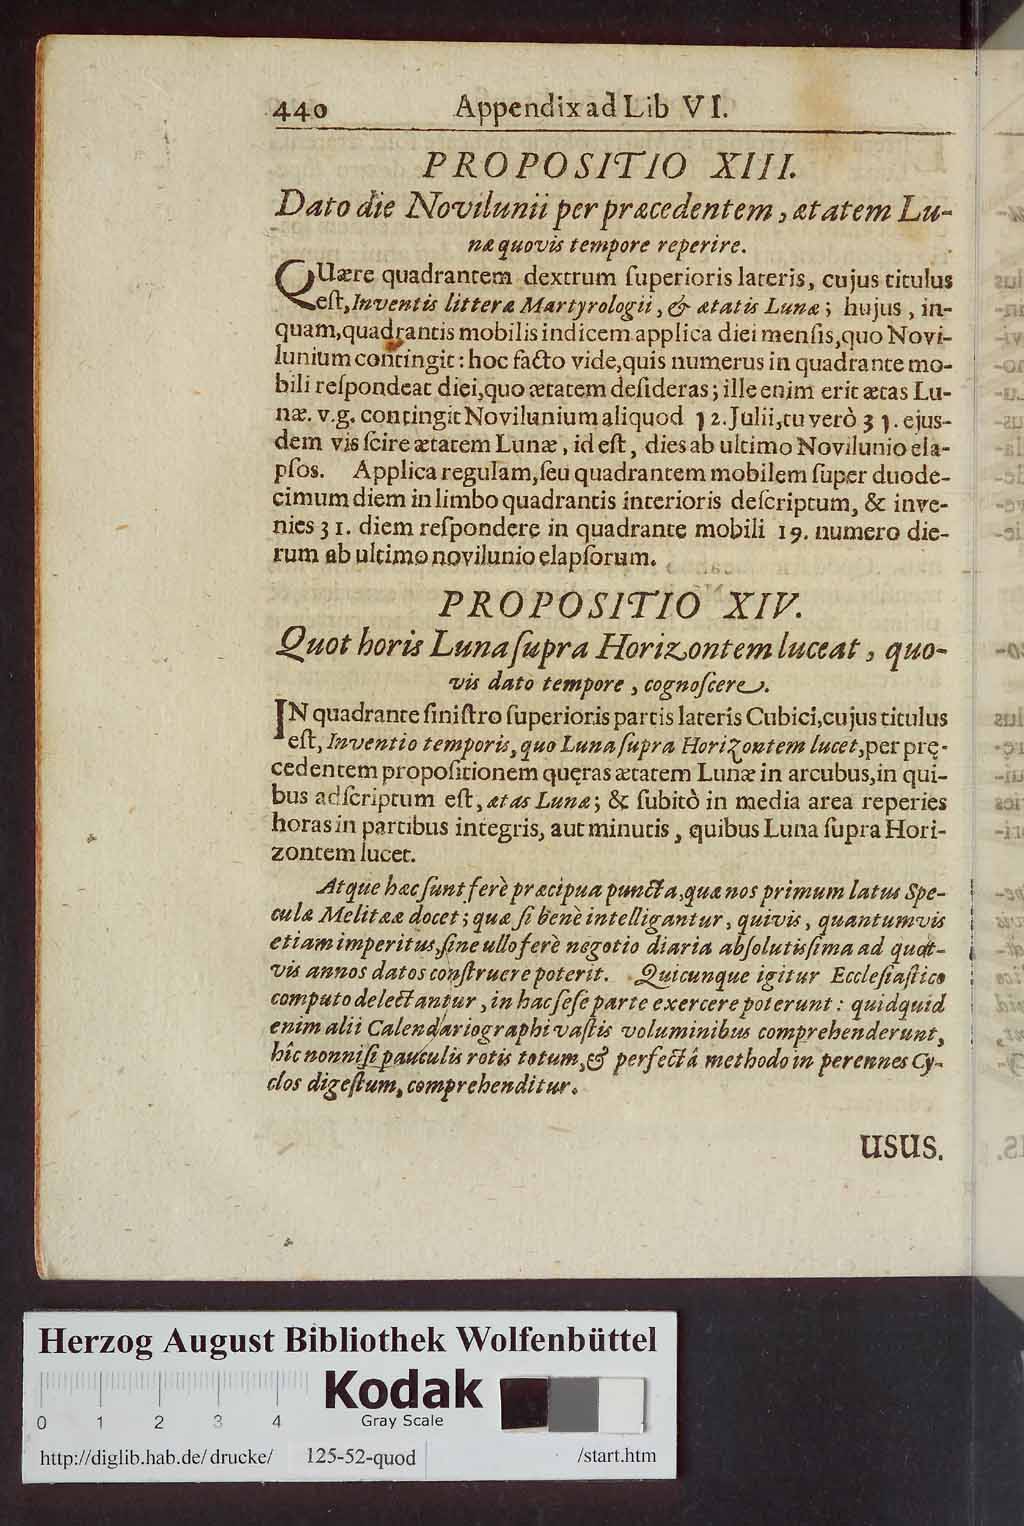 440 Appendix ad Lib VI.
PROPOSITIO XIII.
Dato die Novilunii per præcedentem, ætatem Lu-
næ quovis tempore reperire.
QUære quadrantem dextrum ſuperioris lateris, cujus titulus
eſt, Inventis litteræ Martyrologii, & ætatis Lunæ; hujus, in-
quam, quadrantis mobilis indicem applica diei menſis, quo Novi-
lunium contingit: hoc facto vide, quis numerus in quadrante mo-
bili reſpondeat diei, quo ætatem deſideras; ille enim erit ætas Lu-
næ. v.g. contingit Novilunium aliquod 12. Julii, tu verò 31. ejus-
dem vis ſcire ætatem Lunæ, id eſt, dies ab ultimo Novilunio ela-
pſos. Applica regulam, ſeu quadrantem mobilem ſuper duode-
cimum diem in limbo quadrantis interioris deſcriptum, & inve-
nies 31. diem reſpondere in quadrante mobili 19. numero die-
rum ab ultimo novilunio elapſorum.
PROPOSITIO XIV.
Quot horis Luna ſupra Horizontem luceat, quo-
vis dato tempore, cognoſcere.
IN quadrante ſiniſtro ſuperioris partis lateris Cubici, cujus titulus
eſt, Inventio temporis, quo Luna ſupra Horizontem lucet, per prę-
cedentem propoſitionem quęras ætatem Lunæ in arcubus, in qui-
bus adſcriptum eſt, ætas Lunæ; & ſubitò in media area reperies
horas in partibus integris, aut minutis, quibus Luna ſupra Hori-
zontem lucet.
Atque hæc ſunt ferè præcipua puncta, quæ nos primum latus Spe-
culæ Melitææ docet; quæ ſi benè intelligantur, quivis, quantumvis
etiam imperitus, ſine ullo ferè negotio diaria abſolutiſſima ad quot-
vis annos datos conſtruere poterit. Quicunque igitur Eccleſiaſtico
computo delectantur, in hac ſeſe parte exercere poterunt: quidquid
enim alii Calendariographi vaſtis voluminibus comprehenderunt,
hîc nonniſi pauculis rotis totum, & perfectâ methodo in perennes Cy-
clos digeſtum, comprehenditur.
USUS.
Herzog August Bibliothek Wolfenbüttel
Kodak
Gray Scale
0 1 2 3 4
http://diglib.hab.de/drucke/ 125-52-quod /start.htm